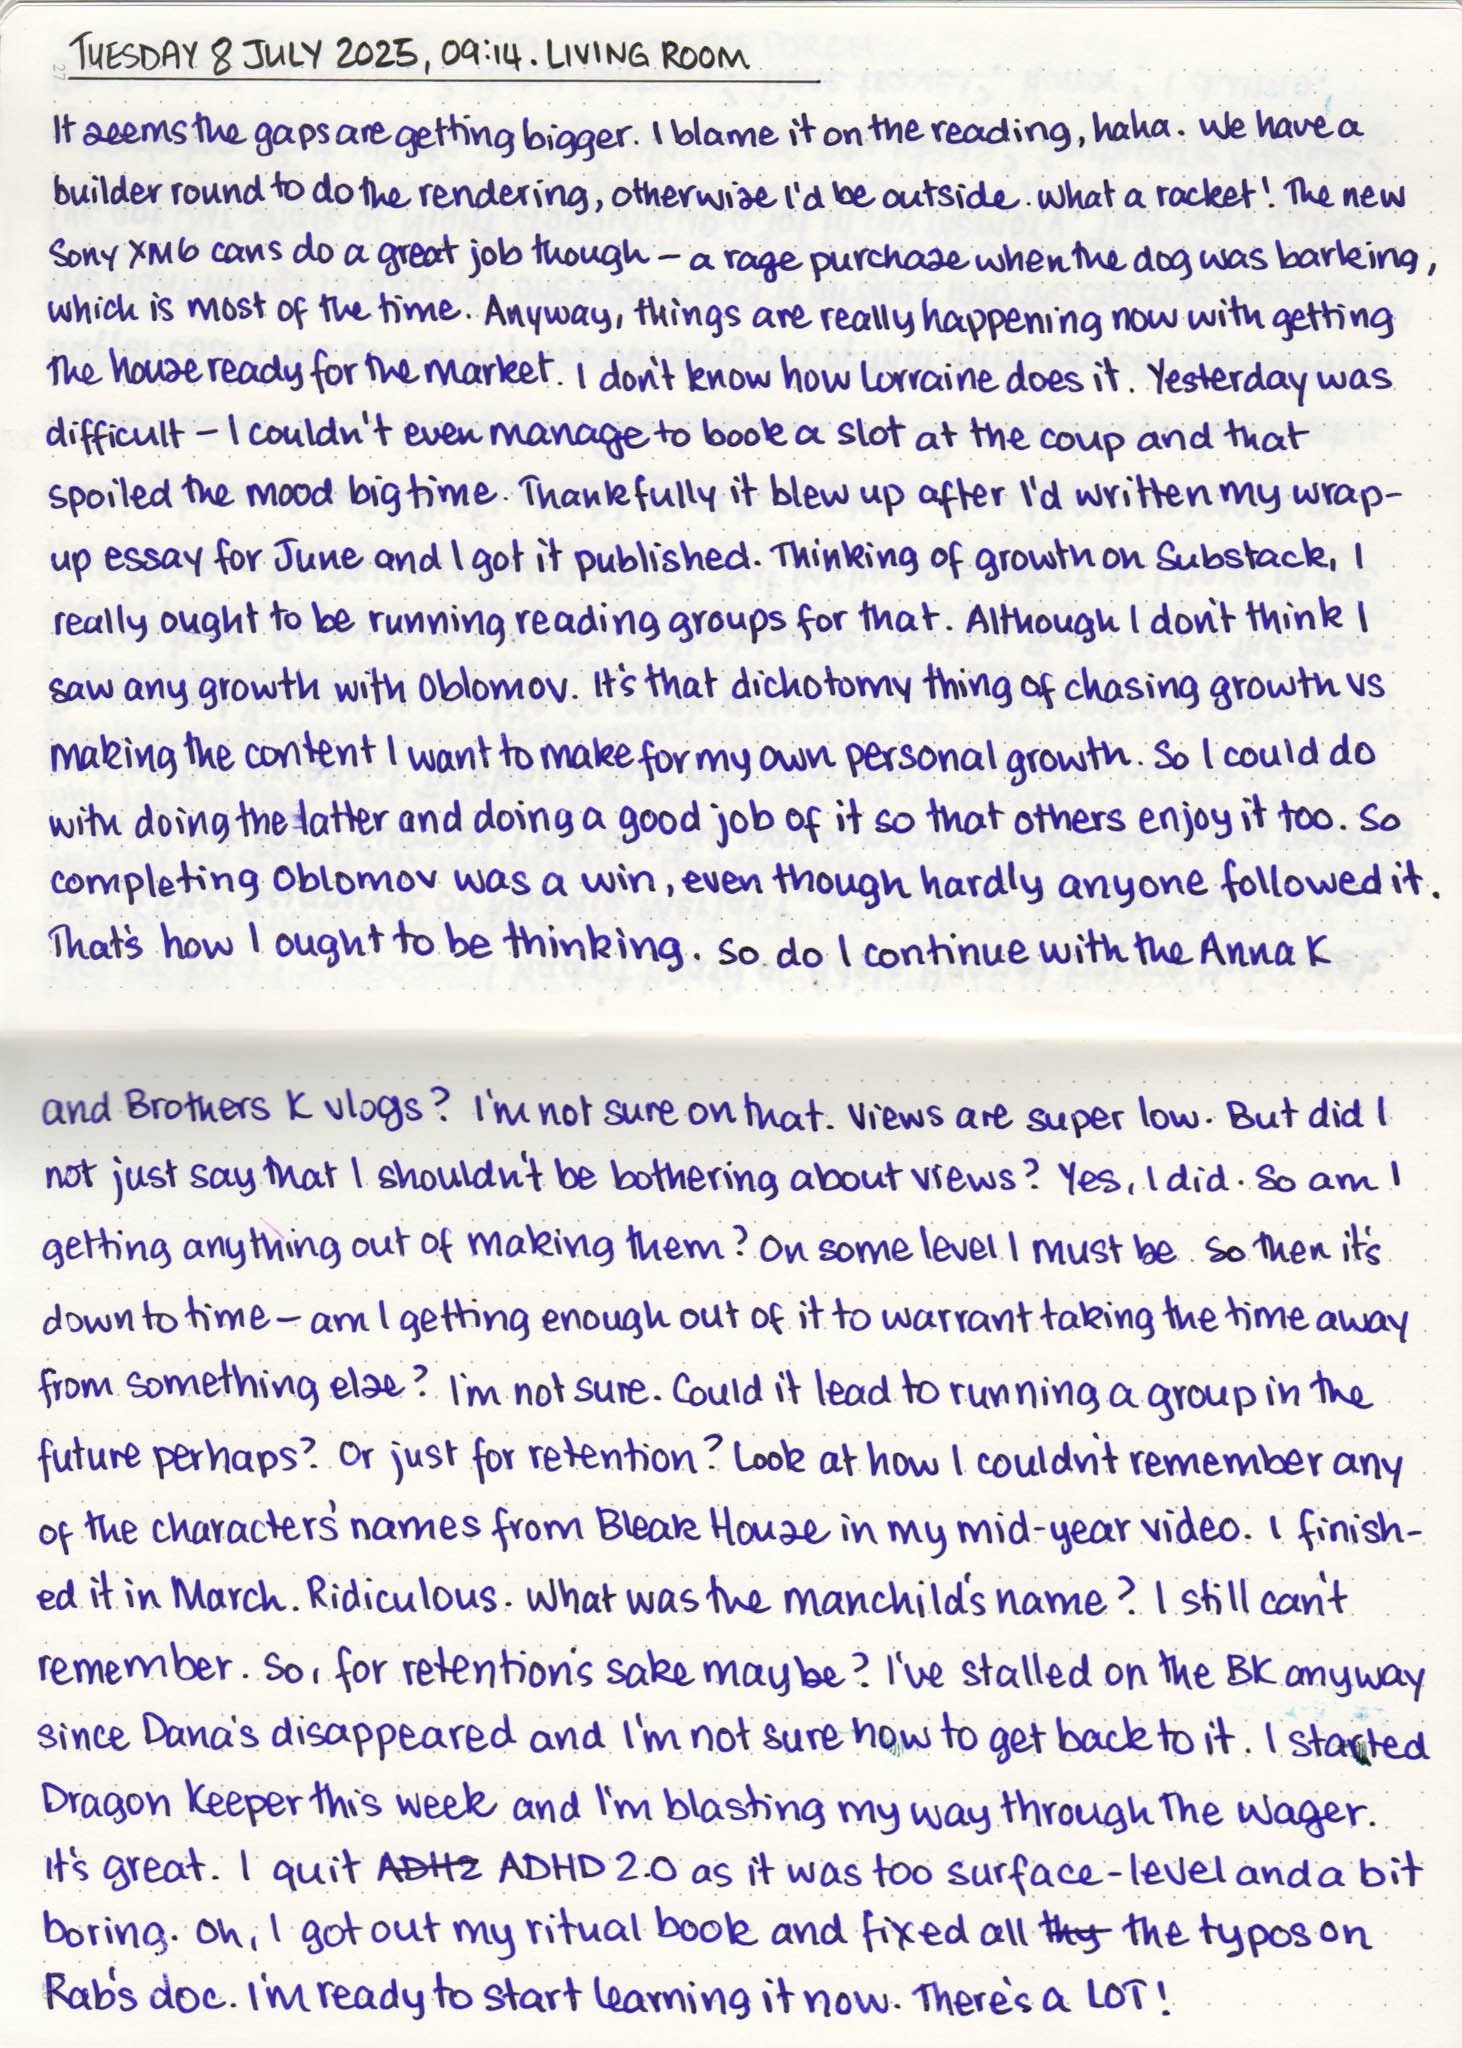 TUESDAY 8 JULY 2025, 09:14. LIVING ROOM
It seems the gaps are getting bigger. I blame it on the reading, haha. We have a
builder round to do the rendering, otherwise I'd be outside. What a racket! The new
Sony XM6 cans do a great job though – a rage purchase when the dog was barking,
which is most of the time. Anyway, things are really happening now with getting
the house ready for the market. I don't know how Lorraine does it. Yesterday was
difficult – I couldn't even manage to book a slot at the coup and that
spoiled the mood big time. Thankfully it blew up after I'd written my wrap-
up essay for June and I got it published. Thinking of growth on Substack, I
really ought to be running reading groups for that. Although I don't think I
saw any growth with Oblomov. It's that dichotomy thing of chasing growth vs
making the content I want to make for my own personal growth. So I could do
with doing the latter and doing a good job of it so that others enjoy it too. So
completing Oblomov was a win, even though hardly anyone followed it.
That's how I ought to be thinking. So do I continue with the Anna K
and Brothers K vlogs? I'm not sure on that. Views are super low. But did I
not just say that I shouldn't be bothering about views? Yes, I did. So am I
getting anything out of making them? On some level I must be. So then it's
down to time – am I getting enough out of it to warrant taking the time away
from something else? I'm not sure. Could it lead to running a group in the
future perhaps? Or just for retention? Look at how I couldn't remember any
of the characters' names from Bleak House in my mid-year video. I finish-
ed it in March. Ridiculous. What was the manchild's name? I still can't
remember. So, for retention's sake maybe? I've stalled on the BK anyway
since Dana's disappeared and I'm not sure how to get back to it. I started
Dragon Keeper this week and I'm blasting my way through The Wager.
It's great. I quit ADH2 ADHD 2.0 as it was too surface-level and a bit
boring. Oh, I got out my ritual book and fixed all thy the typos on
Rab's doc. I'm ready to start learning it now. There's a LOT!